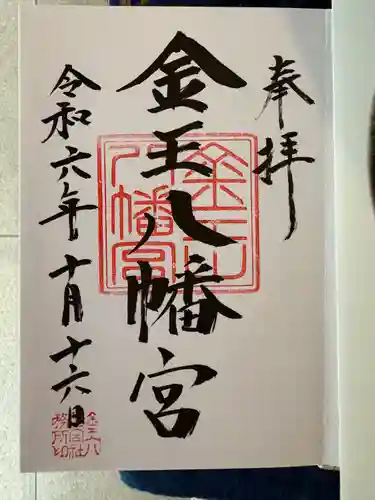 奉拝
金王八幡宮
令和六年十月十六日
金王八幡宮
金王八
幡宮社
務所印